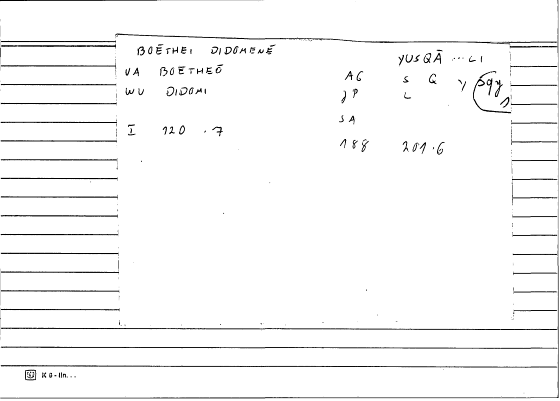 BOĒTHEI DIDOMENĒ
VA BOĒTHEŌ
WU DIDŌMI
I 120 .7
YUSQĀ ...LI
AC S Q Y sqy
JP L
SA
188 201.6
K 9 - lin...